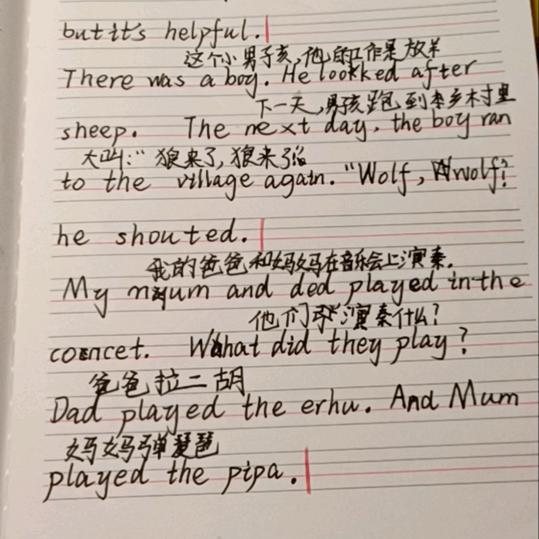 but it's helpful.
这个小男子亥,他的工作是放羊
There was a boy. He lookked after
下一天,男孩跑到李乡村里
sheep. The next day, the boy ran
大叫:“狼来了,狼来了
to the village again. "Wolf, Wwolf!
he shouted.
我的爸爸和妈妈在音乐会上演奏.
My mum and ded played in the
他们演奏什么?
concet. What did they play?
爸爸拉二胡
Dad played the erhu. And Mum
妈妈弹琵琶
played the pipa.